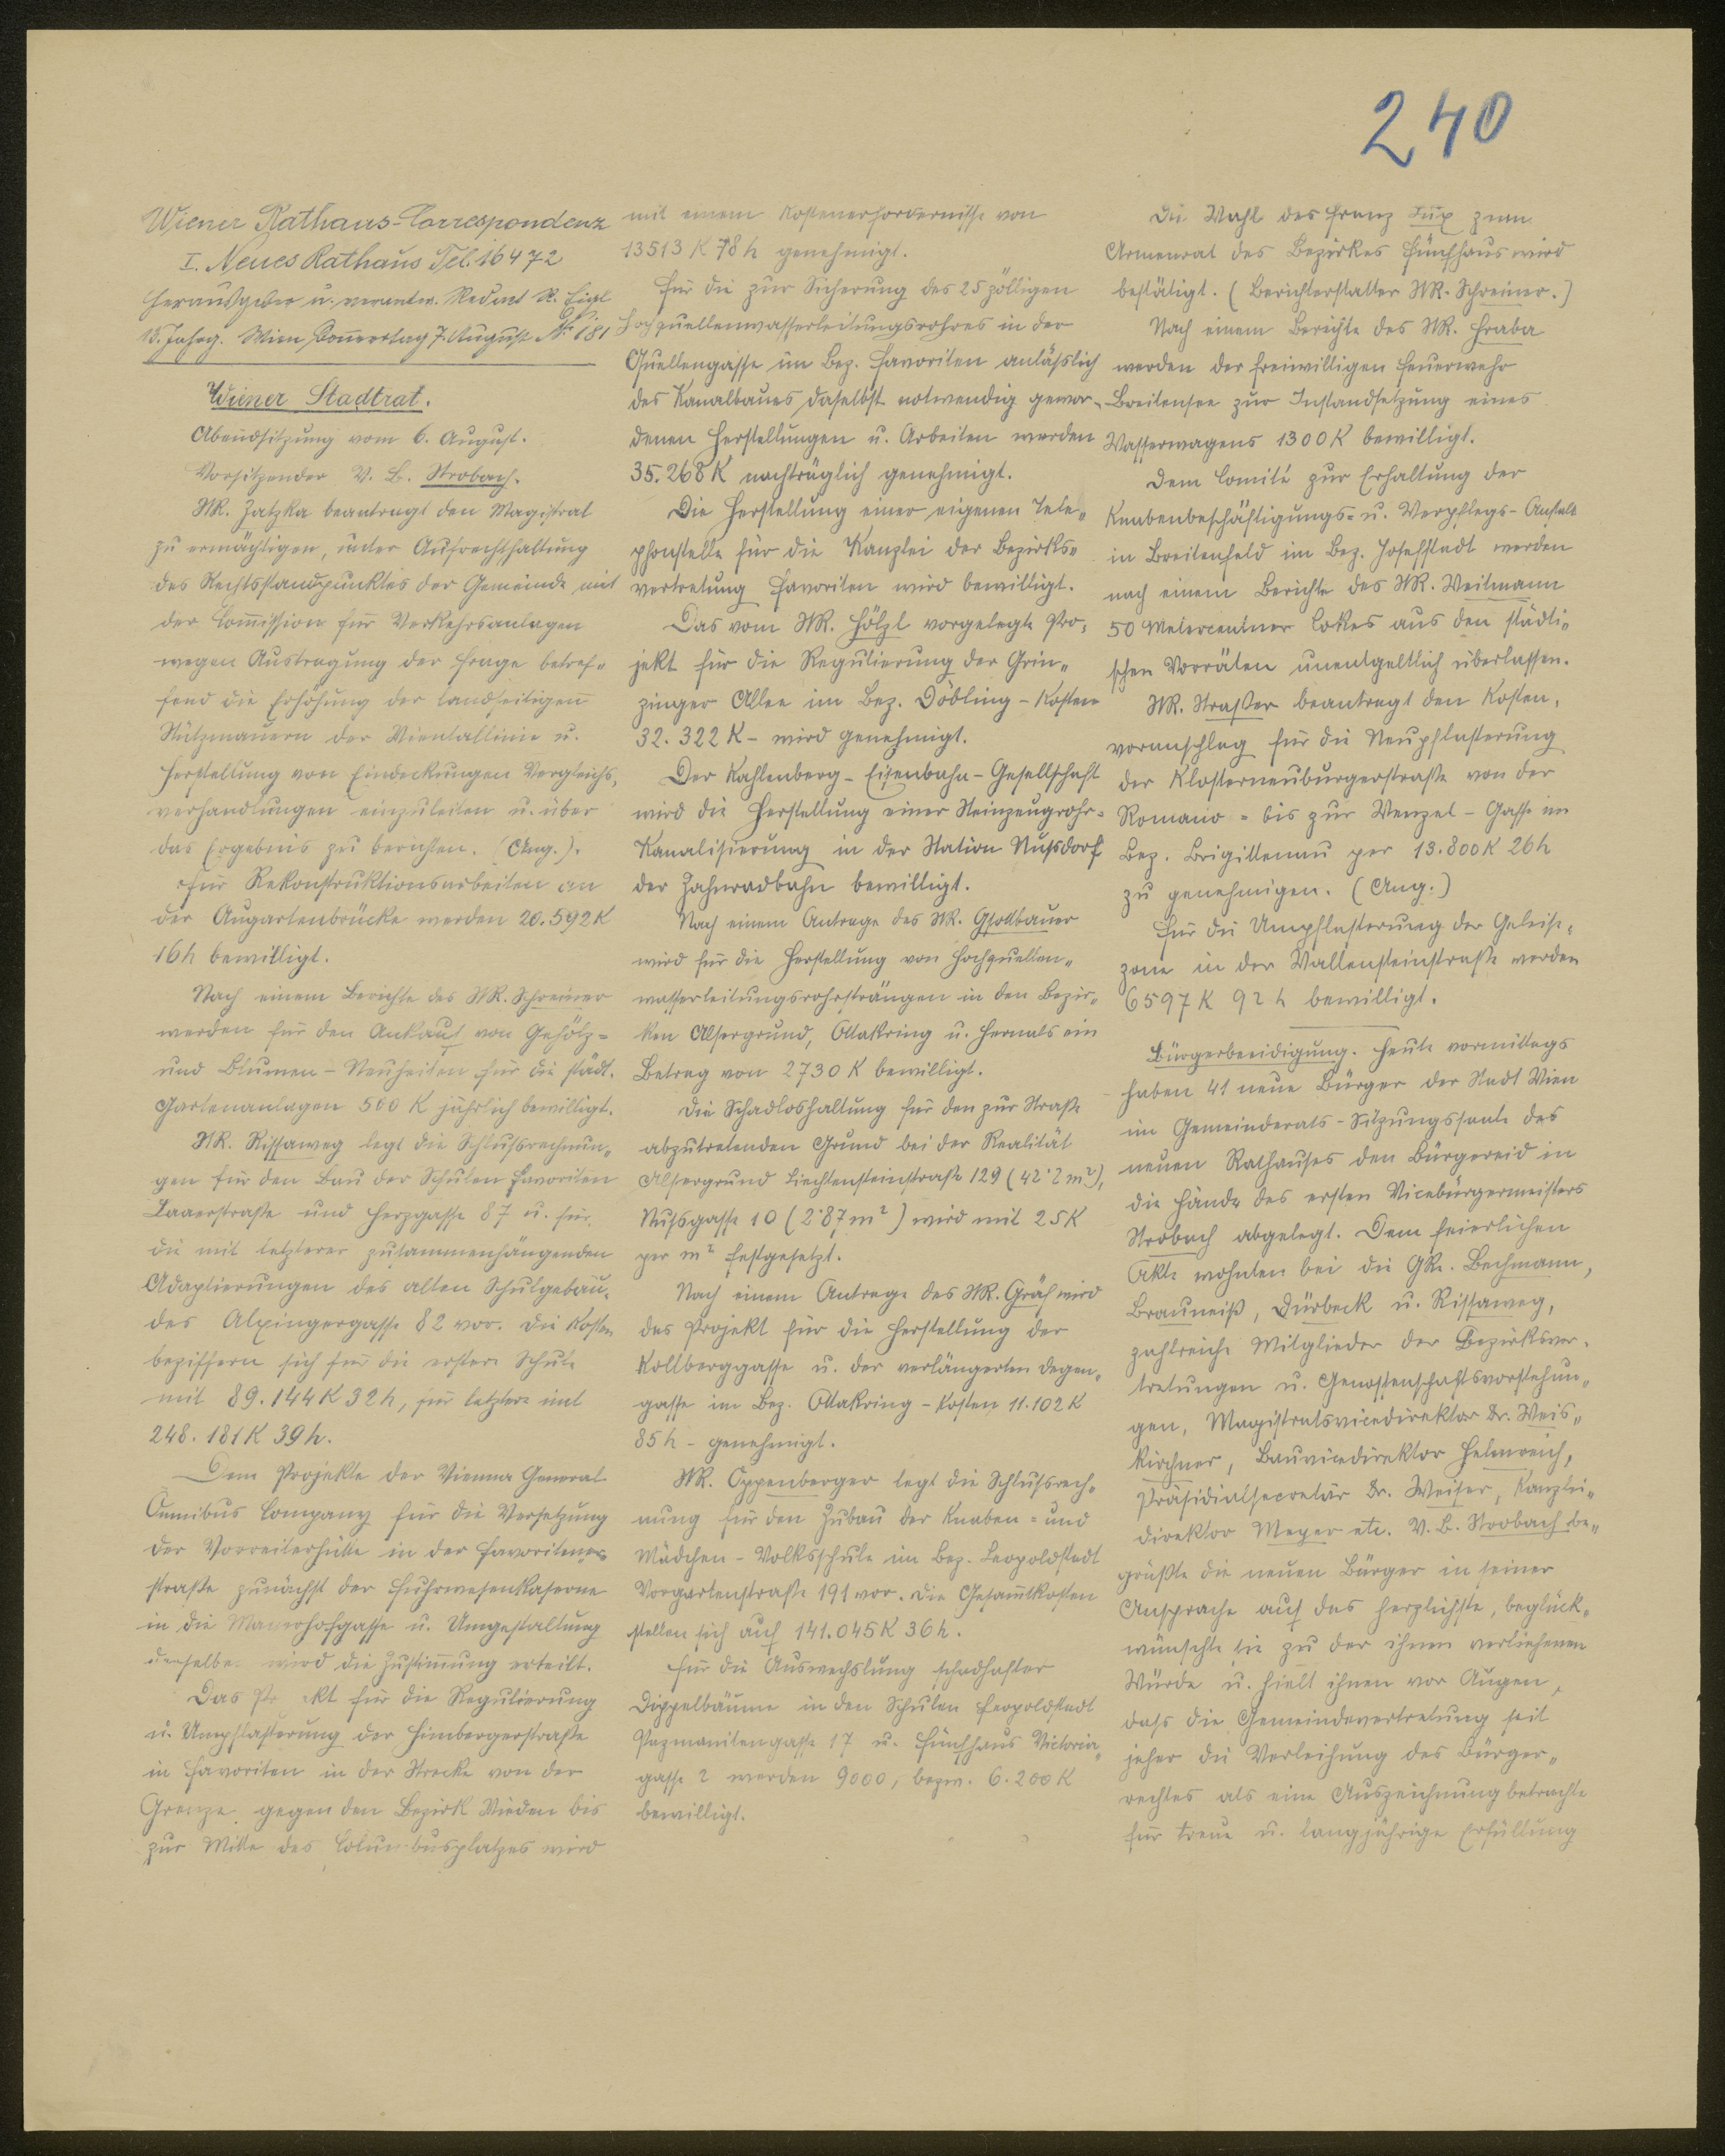 240
Wiener Rathaus-Correspondenz
I. Neues Rathaus Tel. 16472
Herausgeber u. verantw. Redact. R. Eigl
13. Jahrg. Wien, Donnerstag 7. August № 181
Wiener Stadtrat.
Abendsitzung vom 6. August.
Vorsitzender V. B. Strobach.
StR. Zatzka beantragt den Magistrat
zu ermächtigen, unter Aufrechthaltung
des Rechtsstandpunktes der Gemeinde mit
der Com̄ission für Verkehrsanlagen
wegen Austragung der Frage betref-
fend die Erhöhung der landseitigen
Stützmauern der Wientallinie u.
Herstellung von Eindeckungen Vergleichs-
verhandlungen einzuleiten u. über
das Ergebnis zu berichten. (Ang.).
Für Rekonstruktionsarbeiten an
der Augartenbrücke werden 20.592 K
16 h bewilligt.
Nach einem Berichte des StR. Schreiner
werden für den Ankauf von Gehölz-
und Blumen-Neuheiten für die städt.
Gartenanlagen 500 K jährlich bewilligt.
StR. Rissaweg legt die Schlußrechnun-
gen für den Bau der Schulen Favoriten
Laaerstraße und Herzgasse 87 u. für
die mit letzterer zusammenhängenden
Adaptierungen des alten Schulgebäu-
des Alxingergasse 82 vor. Die Kosten
beziffern sich für die erstere Schule
mit 89.144 K 32 h, für letztere mit
248.181 K 39 h.
Dem Projekte der Vienna General
Omnibus Company für die Versetzung
der Vorreiterhütte in der Favoriten-
straße zunächst der Fuhrwesenkaserne
in die Mayerhofgasse u. Umgestaltung
derselben wird die Zustim̄ung erteilt.
Das Projekt für die Regulierung
u. Umpflasterung der Himbergerstraße
in Favoriten in der Strecke von der
Grenze gegen den Bezirk Wieden bis
zur Mitte des Columbusplatzes wird
mit einem Kostenerfordernisse von
13513 K 78 h genehmigt.
Für die zur Sicherung des 25 zölligen
Hochquellenwasserleitungsrohres in der
Quellengasse im Bez. Favoriten anläßlich
des Kanalbaues daselbst notwendig gewor-
denen Herstellungen u. Arbeiten werden
35.268 K nachträglich genehmigt.
Die Herstellung einer eigenen Tele-
phonstelle für die Kanzlei der Bezirks-
vertretung Favoriten wird bewilligt.
Das vom StR. Hölzl vorgelegte Pro-
jekt für die Regulierung der Grin-
zinger Allee im Bez. Döbling - Kosten
32.322 K - wird genehmigt.
Der Kahlenberg-Eisenbahn-Gesellschaft
wird die Herstellung einer Steinzeugrohr-
Kanalisierung in der Station Nußdorf
der Zahnradbahn bewilligt.
Nach einem Antrage des StR. Gsottbauer
wird für die Herstellung von Hochquellen-
wasserleitungsrohrsträngen in den Bezir-
ken Alsergrund, Ottakring u. Hernals ein
Betrag von 2730 K bewilligt.
Die Schadloshaltung für den zur Straße
abzutretenden Grund bei der Realität
Alsergrund Liechtensteinstraße 129 (42·2 m²),
Nußgasse 10 (2·87 m²) wird mit 25 K
per m² festgesetzt.
Nach einem Antrage des StR. Gräf wird
das Projekt für die Herstellung der
Kollberggasse u. der verlängerten Degen-
gasse im Bez. Ottakring - Kosten 11.102 K
85 h - genehmigt.
StR. Oppenberger legt die Schlußrech-
nung für den Zubau der Knaben- und
Mädchen-Volksschule im Bez. Leopoldstadt
Vorgartenstraße 191 vor. Die Gesam̄tkosten
stellen sich auf 141.045 K 36 h.
Für die Auswechslung schadhafter
Dippelbäume in den Schulen Leopoldstadt
Pazmanitengasse 17 u. Fünfhaus Victoria-
gasse 2 werden 9000, bezw. 6.200 K
bewilligt.
Die Wahl des Franz Tux zum
Armenrat des Bezirkes Fünfhaus wird
bestätigt. (Berichterstatter StR. Schreiner.)
Nach einem Berichte des StR. Hraba
werden der freiwilligen Feuerwehr
Breitensee zur Instandsetzung eines
Wasserwagens 1300 K bewilligt.
Dem Comité zur Erhaltung der
Knabenbeschäftigungs- u. Verpflegs-Anstalt
in Breitenfeld im Bez. Josefstadt werden
nach einem Berichte des StR. Weitmann
50 Metercentner Cokes aus den städti-
schen Vorräten unentgeltlich überlassen.
StR. Straßer beantragt den Kosten-
voranschlag für die Neupflasterung
der Klosterneuburgerstraße von der
Romano- bis zur Wenzel-Gasse im
Bez. Brigittenau per 13.800 K 26 h
zu genehmigen. (Ang.)
Für die Umpflasterung der Geleise-
zone in der Wallensteinstraße werden
6597 K 92 h bewilligt.
Bürgerbeeidigung. Heute vormittags
haben 41 neue Bürger der Stadt Wien
im Gemeinderats-Sitzungssaale des
neuen Rathauses den Bürgereid in
die Hände des ersten Vicebürgermeisters
Strobach abgelegt. Dem feierlichen
Akte wohnten bei die GRe. Bechmann,
Brauneiß, Dürbeck u. Rissaweg,
zahlreiche Mitglieder der Bezirksver-
tretungen u. Genossenschaftsvorstehun-
gen, Magistratsvicedirektor Dr. Weis-
kirchner, Bauvicedirektor Helmreich,
Präsidialsecretär Dr. Weiser, Kanzlei-
direktor Meyer etc. V. B. Strobach be-
grüßte die neuen Bürger in seiner
Ansprache auf das herzlichste, beglück-
wünschte sie zu der ihnen verliehenen
Würde u. hielt ihnen vor Augen,
daß die Gemeindevertretung seit
jeher die Verleihung des Bürger-
rechtes als eine Auszeichnung betrachte
für treue u. langjährige Erfüllung